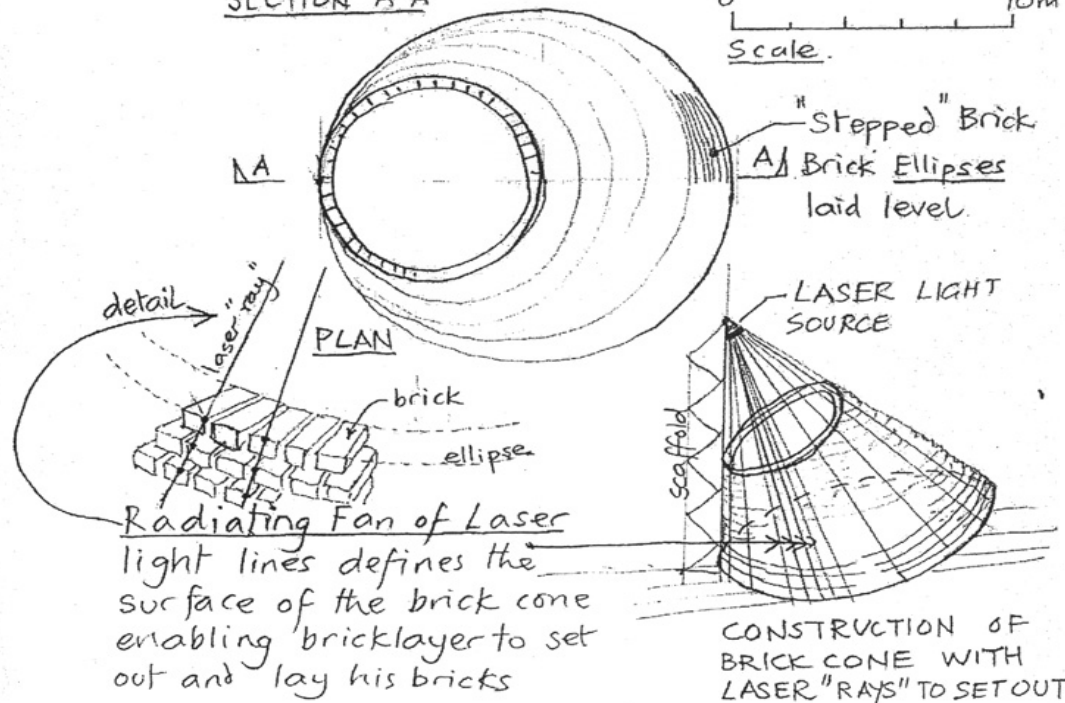 SECTION A-A
0 10m
Scale.
"Stepped" Brick
Brick Ellipses
laid level
A
A
detail
laser "ray"
PLAN
LASER LIGHT
SOURCE
brick
ellipse
scaffold
Radiating Fan of Laser
light lines defines the
surface of the brick cone
enabling bricklayer to set
out and lay his bricks
CONSTRUCTION OF
BRICK CONE WITH
LASER "RAYS" TO SET OUT